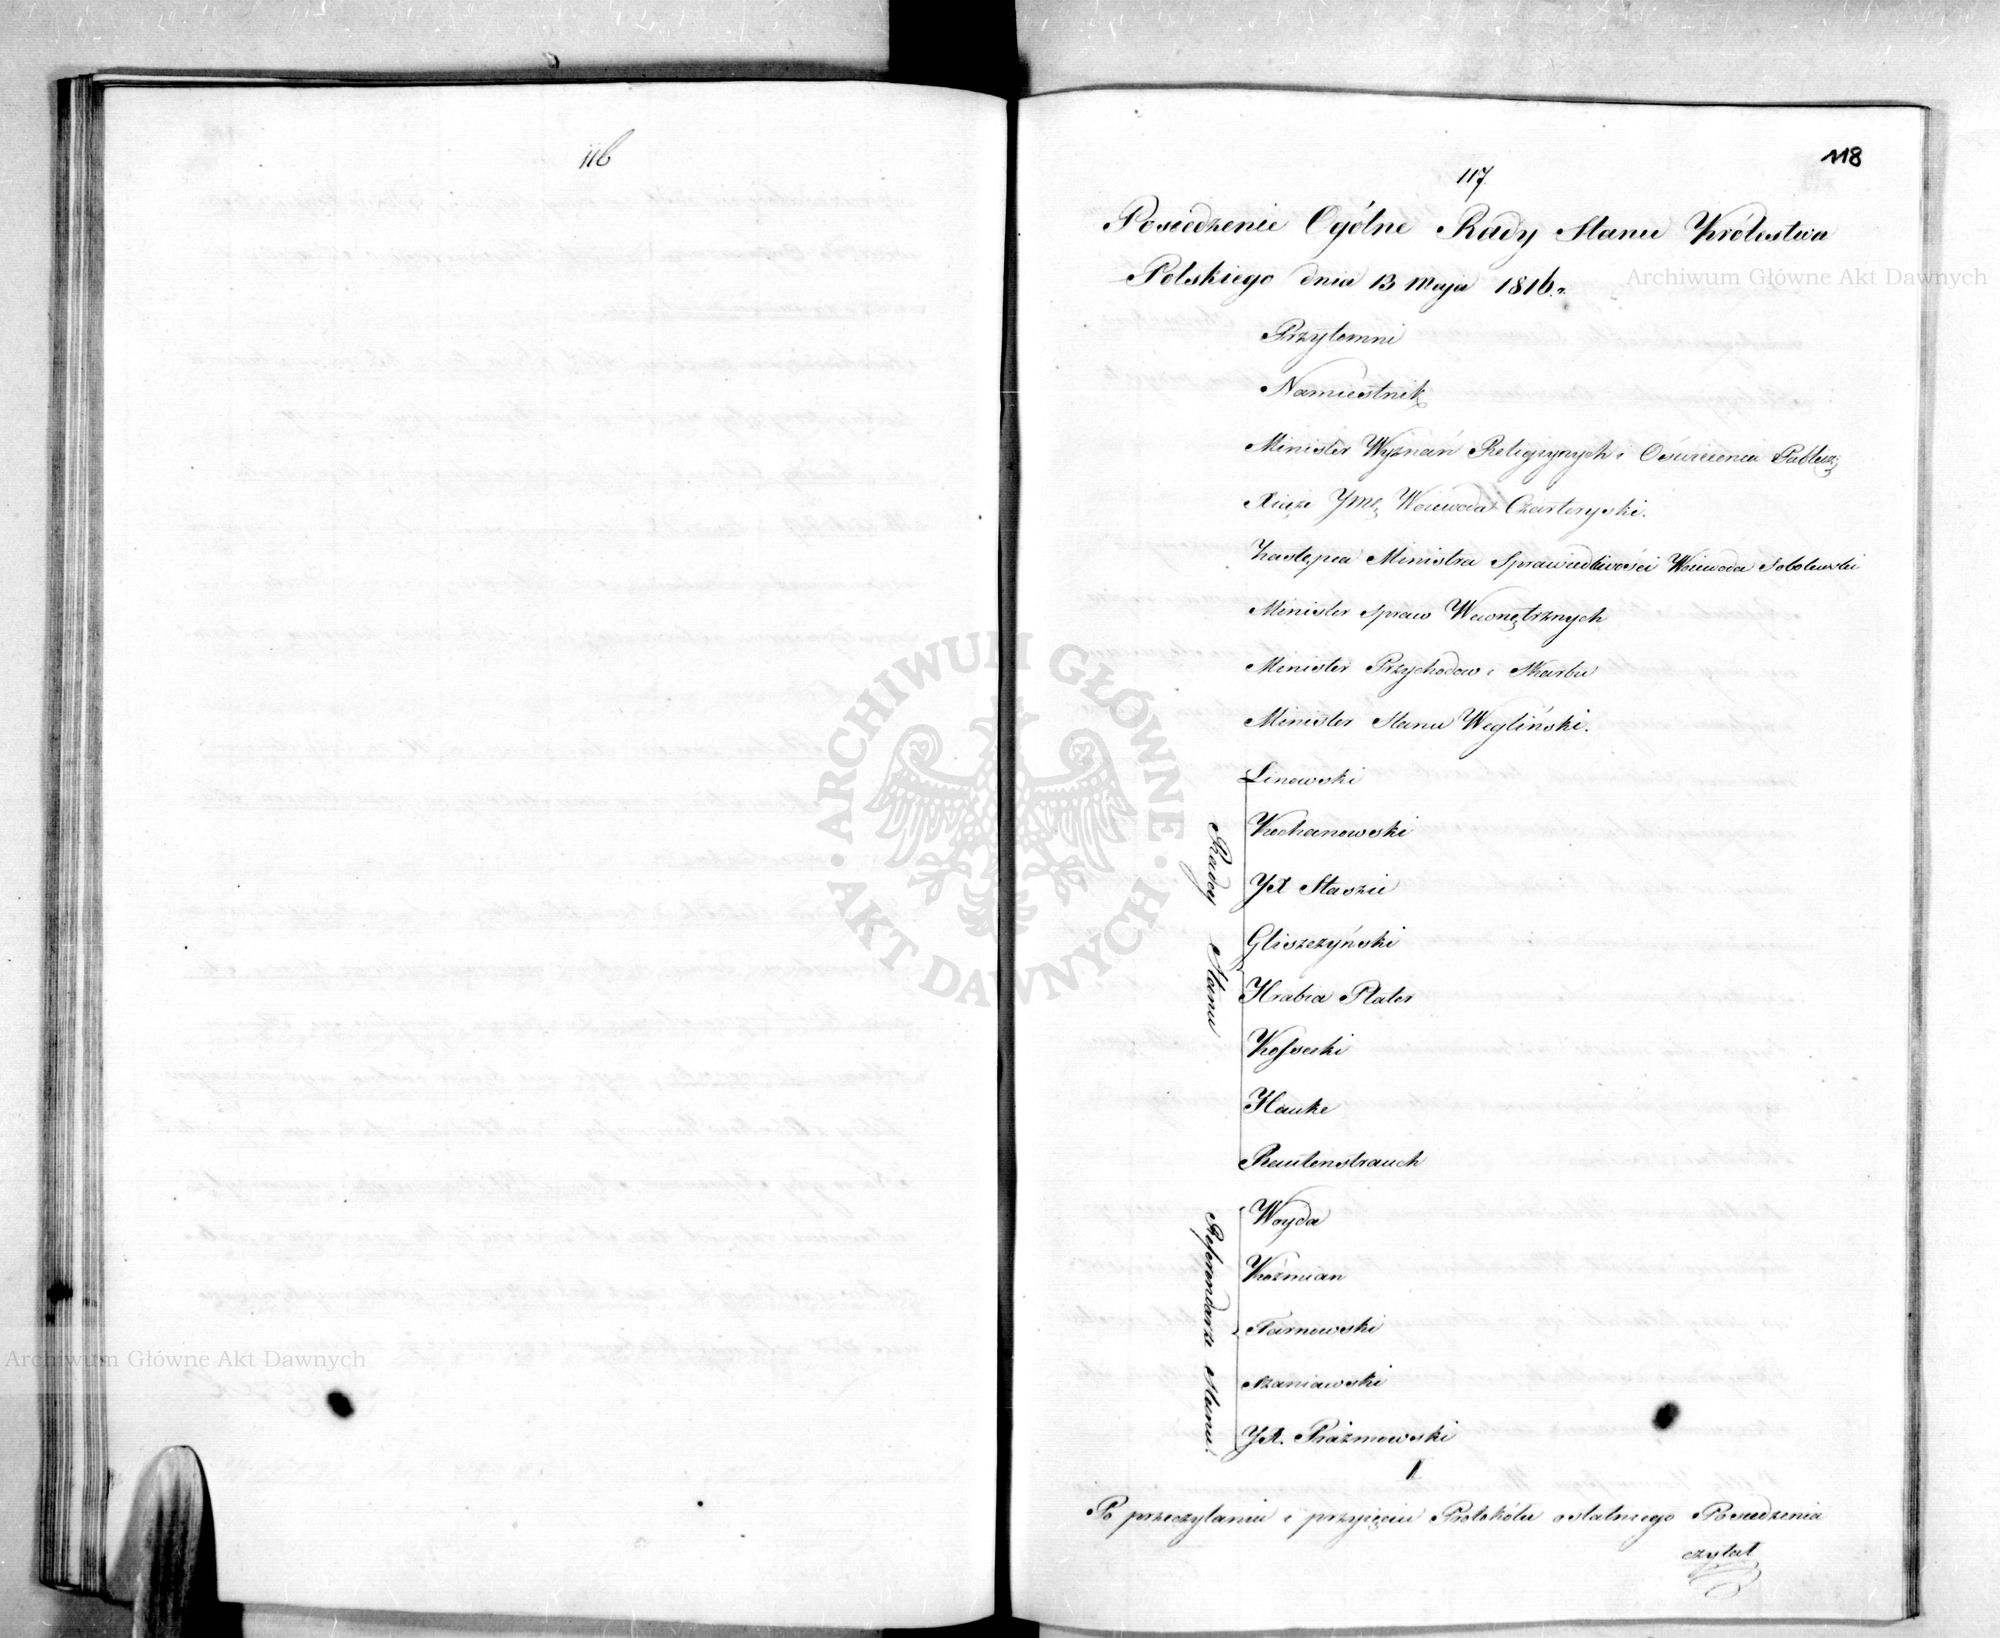 116
118
117.
Posiedzenie Ogólne Rady Stanu Królestwa
Polskiego dnia 13 Maja 1816. r.
Przytomni
Namiestnik
Minister Wyznań Religiynych i Oświecenia Publicz:
Xiąże Jmć Woiewoda Czartoryski.
Zastępca Ministra Sprawiedliwości Woiewoda Sobolewski
Minister Spraw Wewnętrznych
Minister Przychodow i Skarbu
Minister Stanu Węgliński.
Radcy Stanu
Linowski
Kochanowski
JX Staszic
Gliszczyński
Hrabia Plater
Kossecki
Hauke
Rautenstrauch
Referendarze Stanu.
Woyda
Koźmian
Tarnowski
Szaniawski
JX. Prażmowski
Po przeczytaniu i przyięciu Protokółu ostatniego Posiedzenia
czytał
Archiwum Główne Akt Dawnych
Archiwum Główne Akt Dawnych
ARCHIWUM GŁÓWNE · AKT DAWNYCH ·